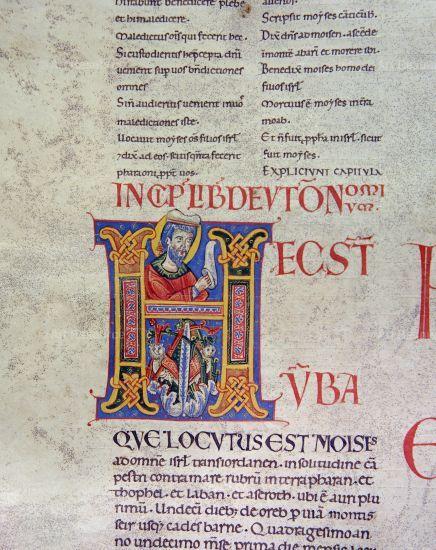 benedicere plebe
et hi maledicere.
Maledictus om̅s qui fecerit hec.
Si custodieris hec p̅cepta dn̅i
uenient sup uos bn̅dictiones
omnes
Sin̅ audieritis uenient in uos
maledictiones iste.
Uocauit moyses om̅s filios isrl̅
⁊ dix̅ ad eos. fecerit
pharaoni pp̅t uos.
alienor̅
Scripsit moyses canticu̅.
Dix̅ dn̅s ad moisen. ascede in
monte̅ abari̅ et morere ibi.
Benedix̅ moises homo dei
filios isrl̅
Mortuus e̅ moises in terra
moab.
Et n̅ fuit ppħa in isrl̅ sicut
fuit moyses.
EXPLICIUNT CAPITULA
INCIP̅ LIB̅ DEUT̅ONOMIUM.
HEC ST̅
U̅BA
QUE LOCUTUS EST MOISES
ad omne̅ isrl̅ transiordanen. in solitudine ca̅
pestri contra mare rubru̅ int̅ pharan. et
thophel. et laban. et aseroth. ubi e̅ auri plu
rimu̅. Undeci̅ dieb; de oreb p uia̅ montis
seir usq; cades barne. Quadragesimo an
no undecimo m̅se. prima die mensis